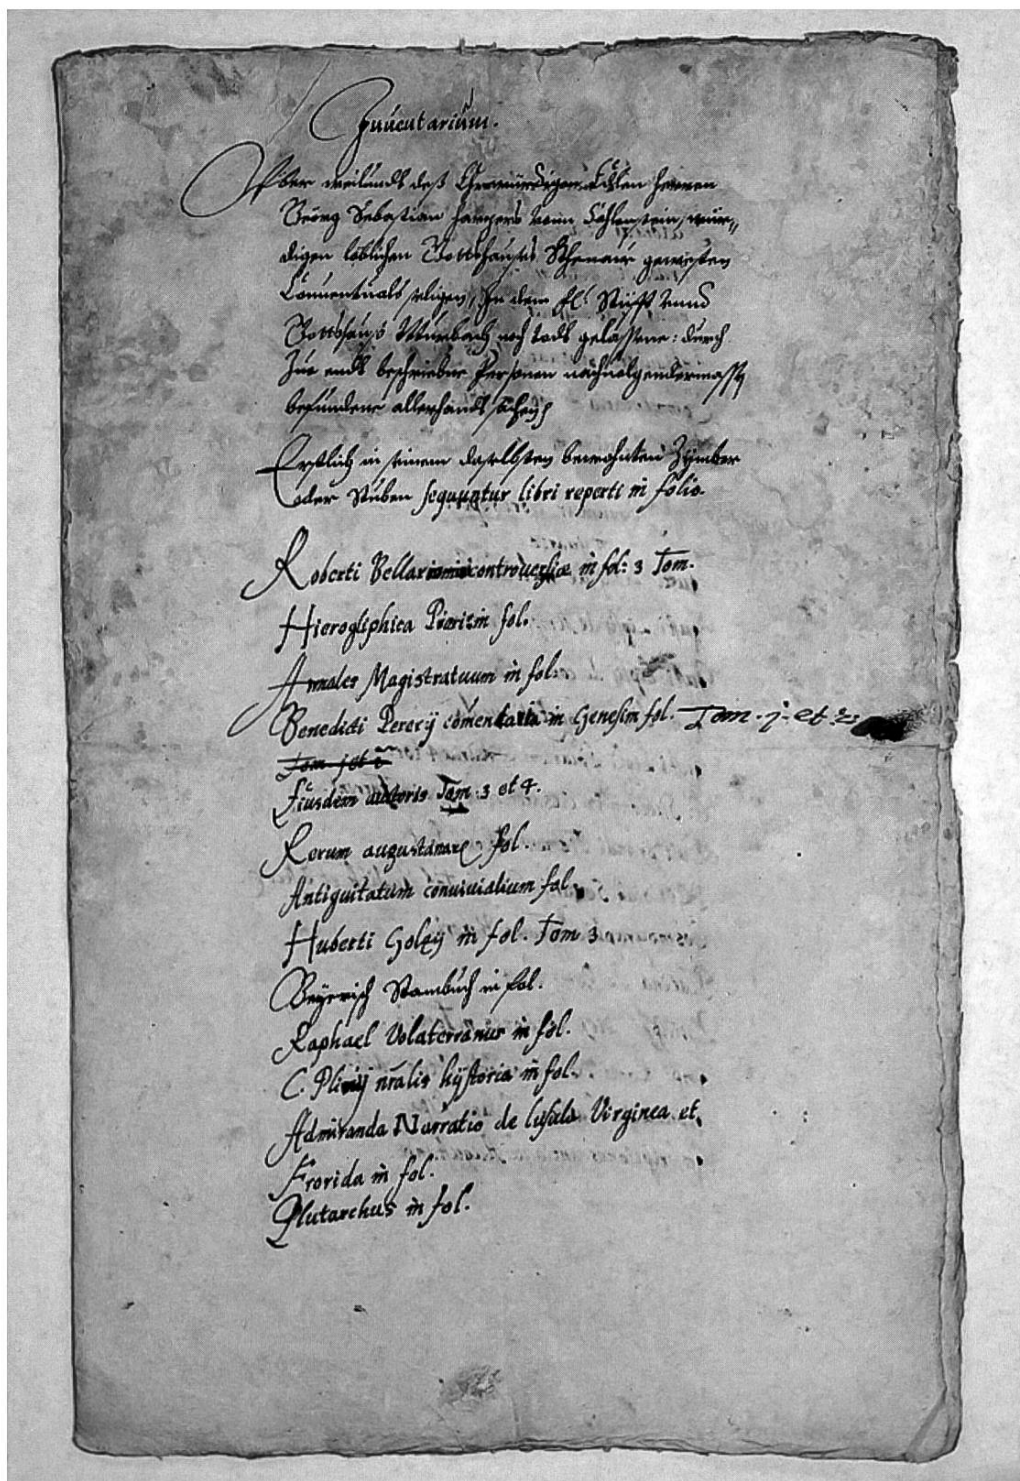 Inuentarium.
Vber weilundt deß Ehrwürdigen Edlen herren
Georg Sebastian Vonn Fohlenstein, wür-
digen löblichen Gottshauses gewesten
Conuentuals seligen, In dem Stüfft Vnnd
Gottshaus Murbach nach todt gelassene: durch
Zue endt beschriebne Personen nachuolgendermassen
befundene allerhandt
Erstlich in seinem daselbsten bewohnten Zimber
oder Stuben sequuntur libri reperti in folio.
Roberti Bellarmini controuersiæ in fol: 3 Tom.
Hierogliphica Pierii in fol.
Annales Magistratuum in fol.
Benedicti Pererij comentaria in Genesim fol. Tom. j. et 2.
Tom j et 2
Eiusdem auctoris Tom 3 et 4.
Rerum augustanar fol.
Antiquitatum conuiuialium fol.
Huberti Golzij in fol. Tom 3
Beyerisch Stambuch in fol.
Raphael Volaterranus in fol.
C. Plinij nralis hystoria in fol.
Admiranda Narratio de Insula Virginea et
Frorida in fol.
Plutarchus in fol.